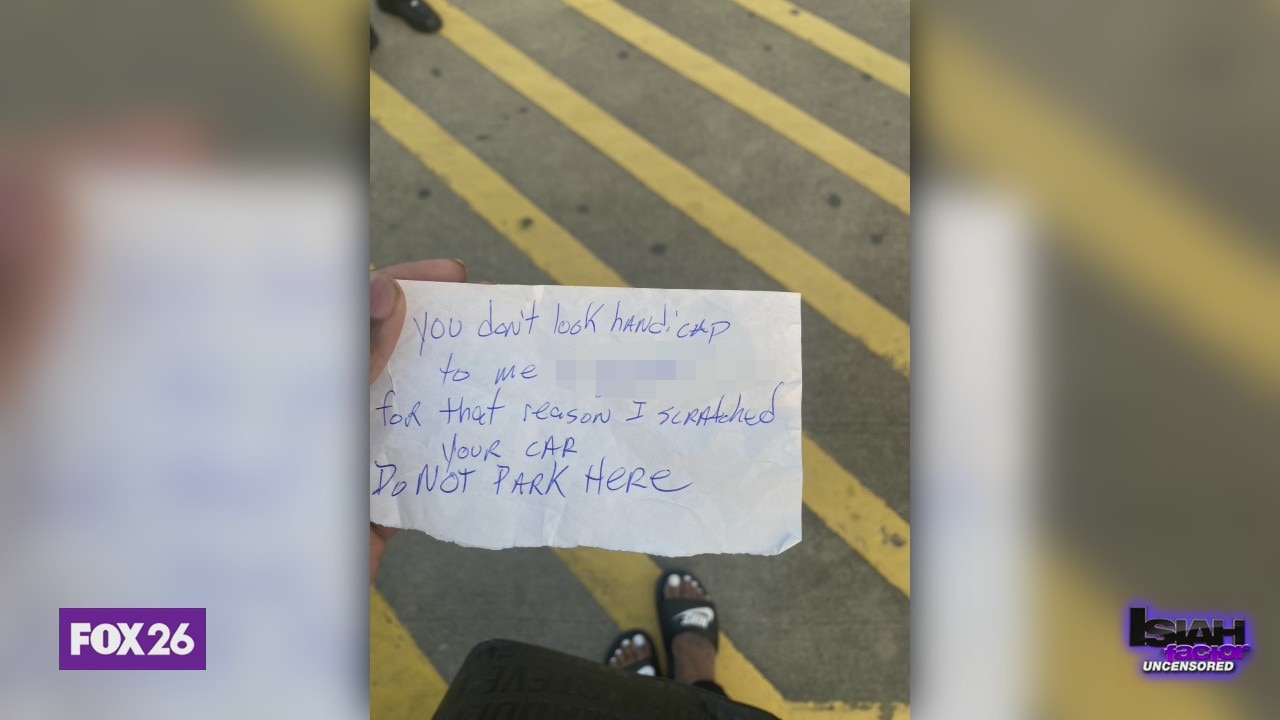 you don't look handicap
to me
for that reason I scratched
your car
Do NOT PARK HERE
FOX 26
ISIAH
factor
UNCENSORED